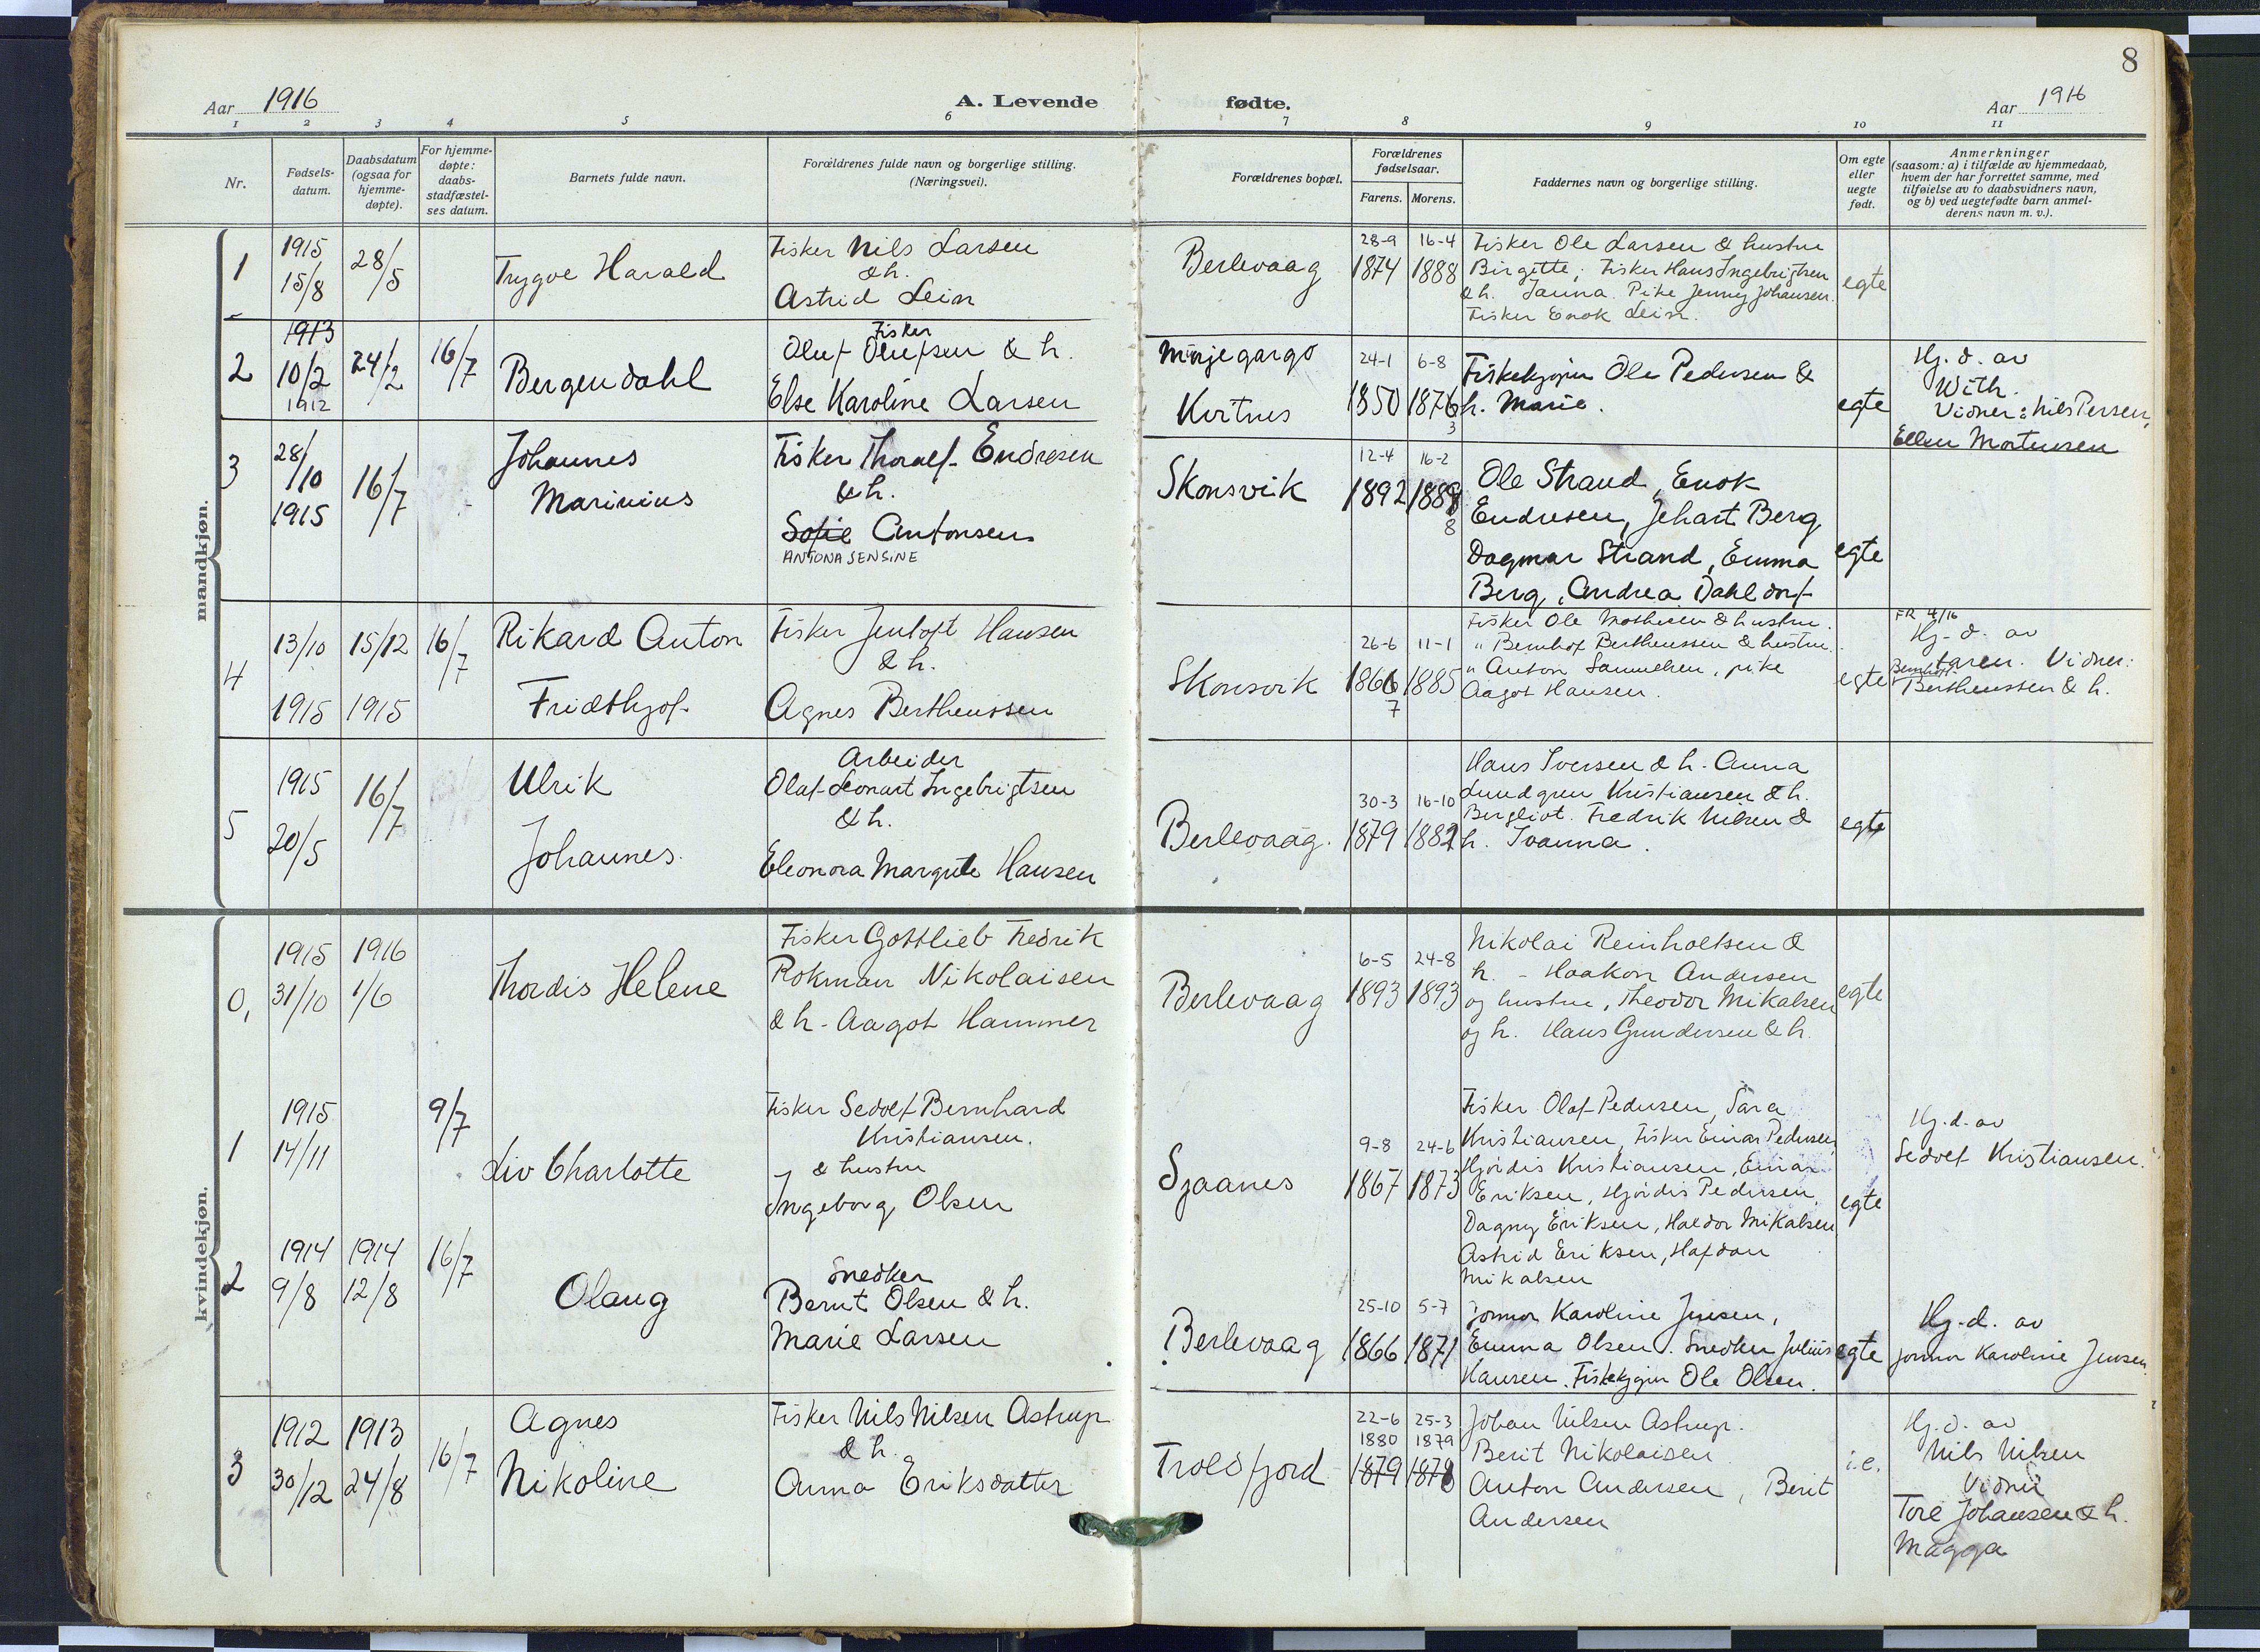 8
Aar 1916
A. Levende fødte.
Aar 1916
1 2 3 4 5 6 7 8 9 10 11
Nr.
Fødsels-
datum.
Daabsdatum
(ogsaa for
hjemme-
døpte).
For hjemme-
døpte:
daabs-
stadfæstel-
ses datum.
Barnets fulde navn.
Forældrenes fulde navn og borgerlige stilling.
(Næringsvei).
Forældrenes bopæl.
Forældrenes
fødselsaar.
Farens. Morens.
Faddernes navn og borgerlige stilling.
Om egte
eller
uegte
født.
Anmerkninger
(saasom: a) i tilfælde av hjemmedaab,
hvem der har forrettet samme, med
tilføielse av to daabsvidners navn,
og b) ved uegtefødte barn anmel-
derens navn m. v.).
mandkjøn.
1
1915
15/8
28/5
Trygve Harald
Fisker Nils Larsen
& h.
Astrid Lein
Berlevaag
28-9
1874
16-4
1888
Fisker Ole Larsen & hustru
Birgitte, Fisker Hans Ingebrigtsen
& h. Janna. Pike Jenny Johansen.
Fisker Enok Lein.
egte
2
1913
10/2
1912
24/2
16/7
Bergendahl
Fisker
Oluf Olufsen & h.
Else Karoline Larsen
Kvitnes
24-1
1850
6-8
1876
3
Fiskekjøper Ole Pedersen &
h. Marie.
egte
Hj. d. av
With.
Vidner: Nils Persen,
Ellen Mortensen
3
28/10
1915
16/7
Johannes
Marinius
Fisker Thoralf Endresen
& h.
Sofie Antonsen
ANTONA SENSINE
Skonsvik
12-4
1892
16-2
1889
8
Ole Strand, Enok
Endresen, Jehart Berg
Dagmar Strand, Emma
Berg, Andrea Dahldorf
egte
4
13/10
1915
15/12
1915
16/7
Rikard Anton
Fridthjof
Fisker Jentoft Hansen
& h.
Agnes Bertheussen
Skonsvik
26-6
1866
7
11-1
1885
Fisker Ole Mathisen & hustru.
" Bernhof Bertheussen & hustru.
" Anton Samuelsen, pike
Aagot Hansen.
egte
FR 4/16
Hj. d. av
faren. Vidner:
Bernhoft
Bertheussen & h.
5
1915
20/5
16/7
Ulrik
Johannes
Arbeider
Olaf Leonart Ingebrigtsen
& h.
Eleonora Margrete Hansen
Berlevaag.
30-3
1879
16-10
1882
Hans Iversen & h. Anna
Lundgren Kristiansen & h.
Bergliot. Fredrik Nilsen &
h. Ivanna.
egte
kvindekjøn.
0,
1915
31/10
1916
1/6
Thordis Helene
Fisker Gottlieb Fredrik
Rokman Nikolaisen
& h. Aagot Hammer
Berlevaag
6-5
1893
24-8
1893
Nikolai Reinholtsen &
h. - Haakon Andersen
og hustru, Theodor Mikalsen
og h. Hans Gundersen & h.
egte
1
1915
14/11
9/7
Liv Charlotte
Fisker Sedolf Bernhard
Kristiansen.
& hustru
Ingeborg Olsen
Sjaanes
9-8
1867
24-6
1873
Fisker Olaf Pedersen, Sara
Kristiansen, Fisker Einar Pedersen,
Hjördis Kristiansen, Einar
Eriksen, Hjördis Pedersen,
Dagny Eriksen, Haldor Mikalsen
Astrid Eriksen, Hafdan
Mikalsen
egte
Hj. d. av
Sedolf Kristiansen.
2
1914
9/8
1914
12/8
16/7
Olaug
Snedker
Bernt Olsen & h.
Marie Larsen
Berlevaag
25-10
1866
5-7
1871
jormor Karoline Jensen,
Emma Olsen. Snedker Julius
Hansen. Fiskekjøper Ole Olsen.
egte
Hj. d. av
jormor Karoline Jensen.
3
1912
30/12
1913
24/8
16/7
Agnes
Nikoline
Fisker Nils Nilsen Astrup
& h.
Anna Eriksdatter
Troldfjord
22-6
1880
1879
25-3
1879
1878
Johan Nilsen Astrup.
Berit Nikolaisen
Anton Andersen, Berit
Andersen
i.e.
Hj. d. av
Nils Nilsen
Vidner
Tore Johansen & h.
Magga